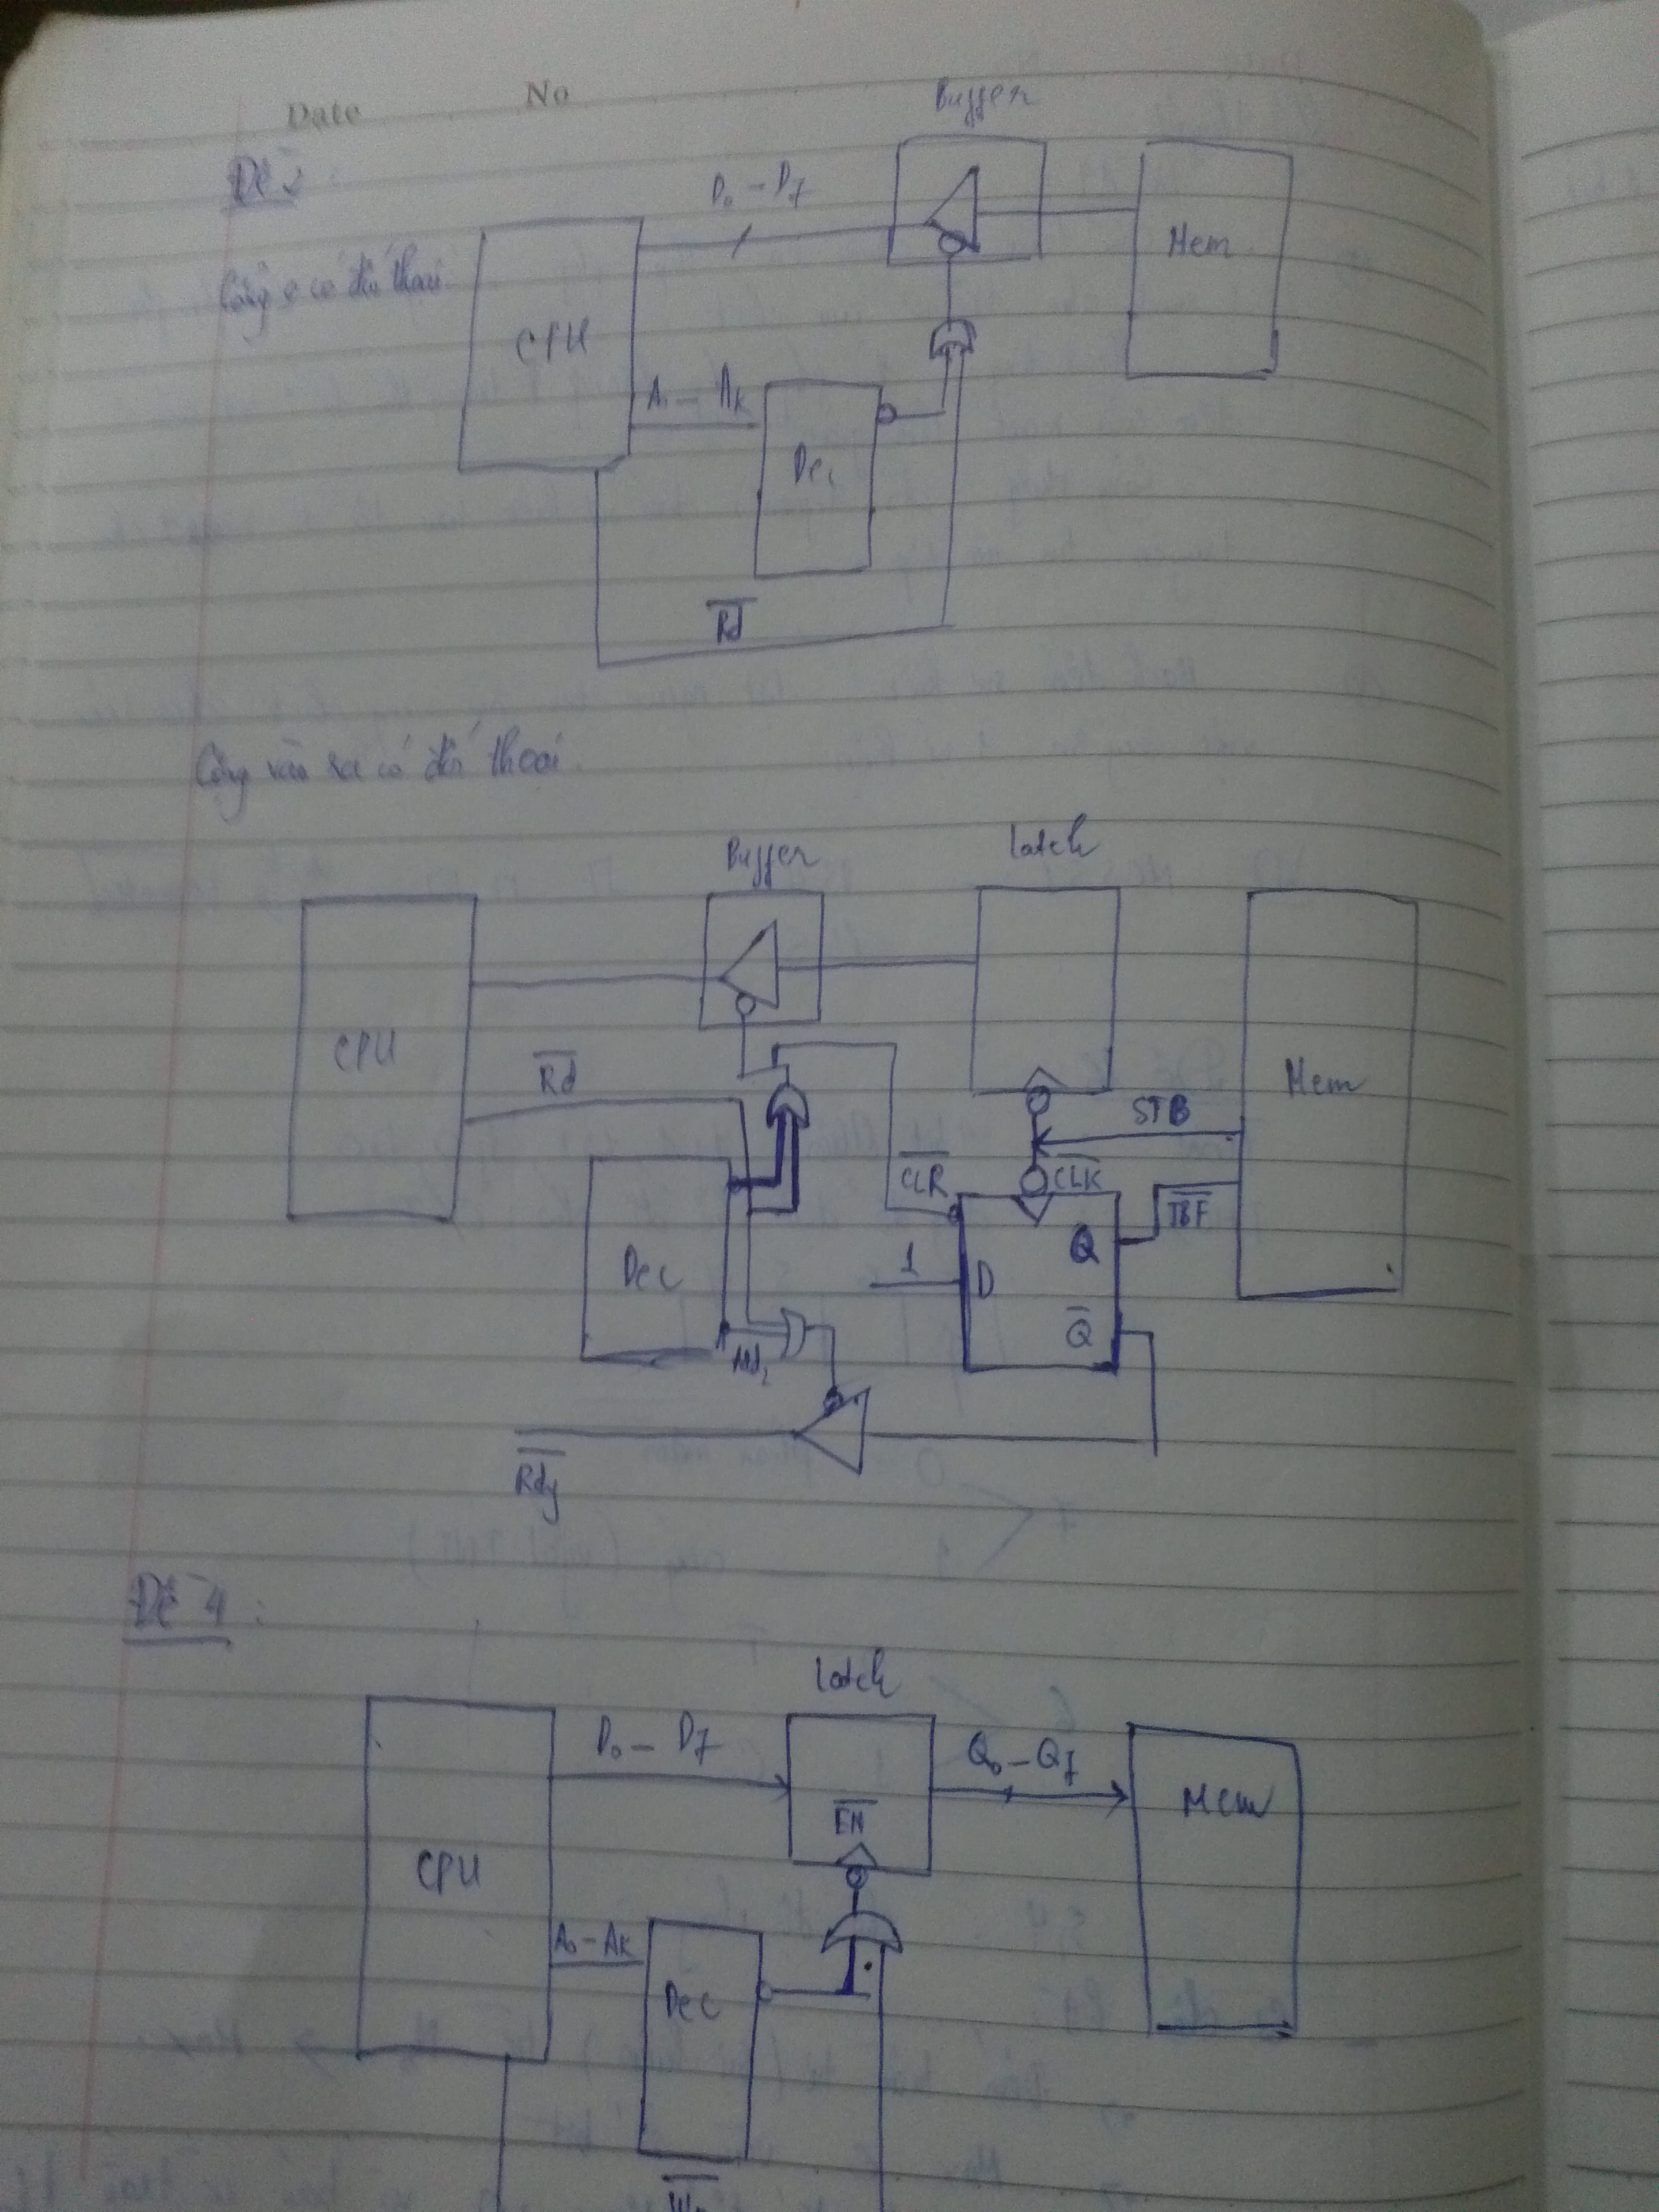 Date No
Đề 2:
Buffer
D0 – D7
Mem
CPU
A0 – AK
Dec
Rd
Cổng vào ra có đối thoại
Buffer
Latch
CPU
Rd
Mem
STB
CLR
CLK
IBF
Q
1
D
Dec
Q
Add2
Rdy
Đề 4:
Latch
D0 – D7
Q0 – Q7
Mem
EN
CPU
A0 – AK
Dec